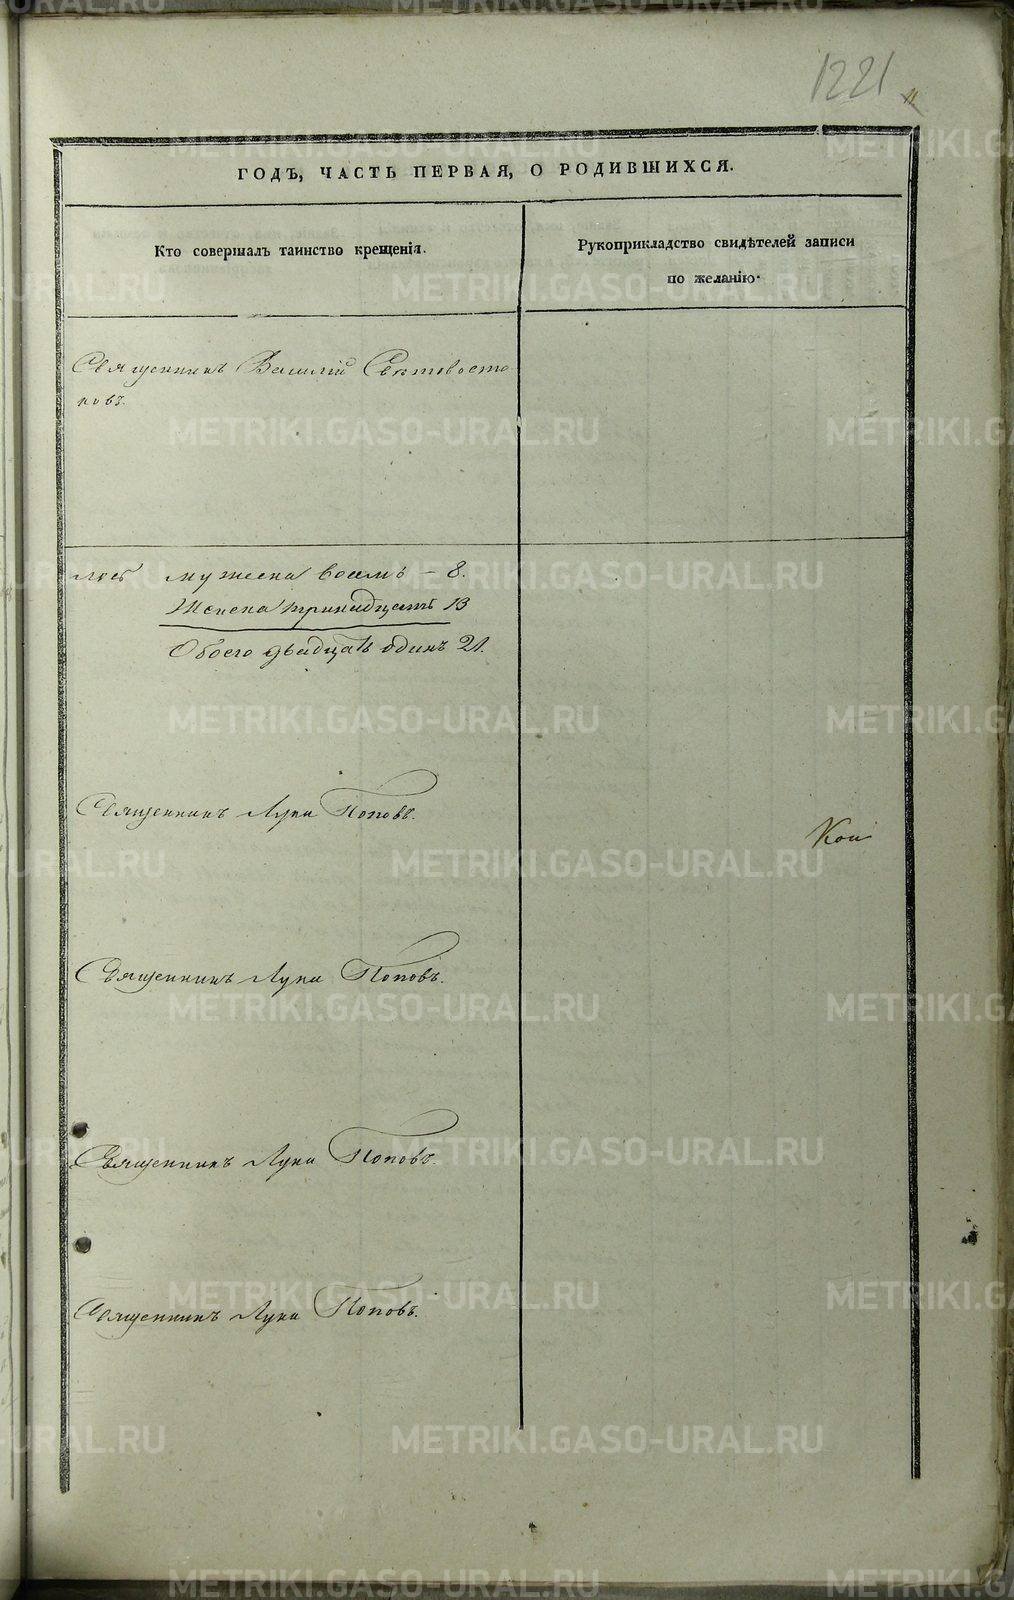 1221
ГОДЪ, ЧАСТЬ ПЕРВАЯ, О РОДИВШИХСЯ.
Кто совершалъ таинство крещенія.
Рукоприкладство свидѣтелей записи
по желанію.
Священникъ Василій Свѣтовосто-
ковъ.
мужеска восемь – 8.
Женска тринадцать 13
Обоего двадцать одинъ 21.
Священникъ Лука Поповъ.
Кои
Священникъ Лука Поповъ.
Священникъ Лука Поповъ.
Священникъ Лука Поповъ.
METRIKI.GASO-URAL.RU